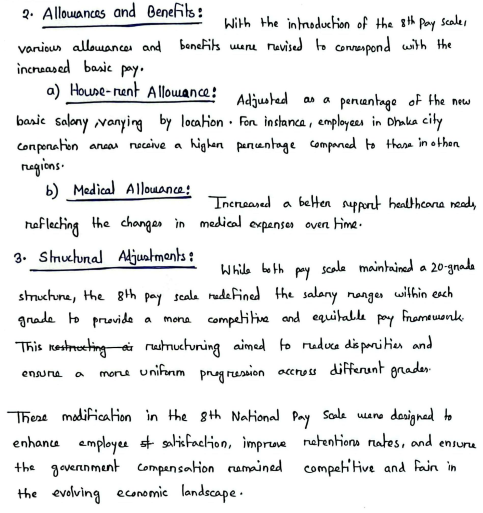 2. Allowances and Benefits:
With the introduction of the 8th pay scale,
various allowances and benefits were revised to correspond with the
increased basic pay.
a) House-rent Allowance:
Adjusted as a percentage of the new
basic salary, varying by location. For instance, employees in Dhaka city
corporation areas receive a higher percentage compared to those in other
regions.
b) Medical Allowance:
Increased a better support healthcare needs,
reflecting the changes in medical expenses over time.
3. Structural Adjustments:
While both pay scale maintained a 20-grade
structure, the 8th pay scale redefined the salary ranges within each
grade to provide a more competitive and equitable pay framework.
This restructing ai restructuring aimed to reduce disparities and
ensure a more uniform progression accross different grades.
These modification in the 8th National Pay Scale were designed to
enhance employee st satisfaction, improve retentions rates, and ensure
the government compensation remained competitive and fair in
the evolving economic landscape.